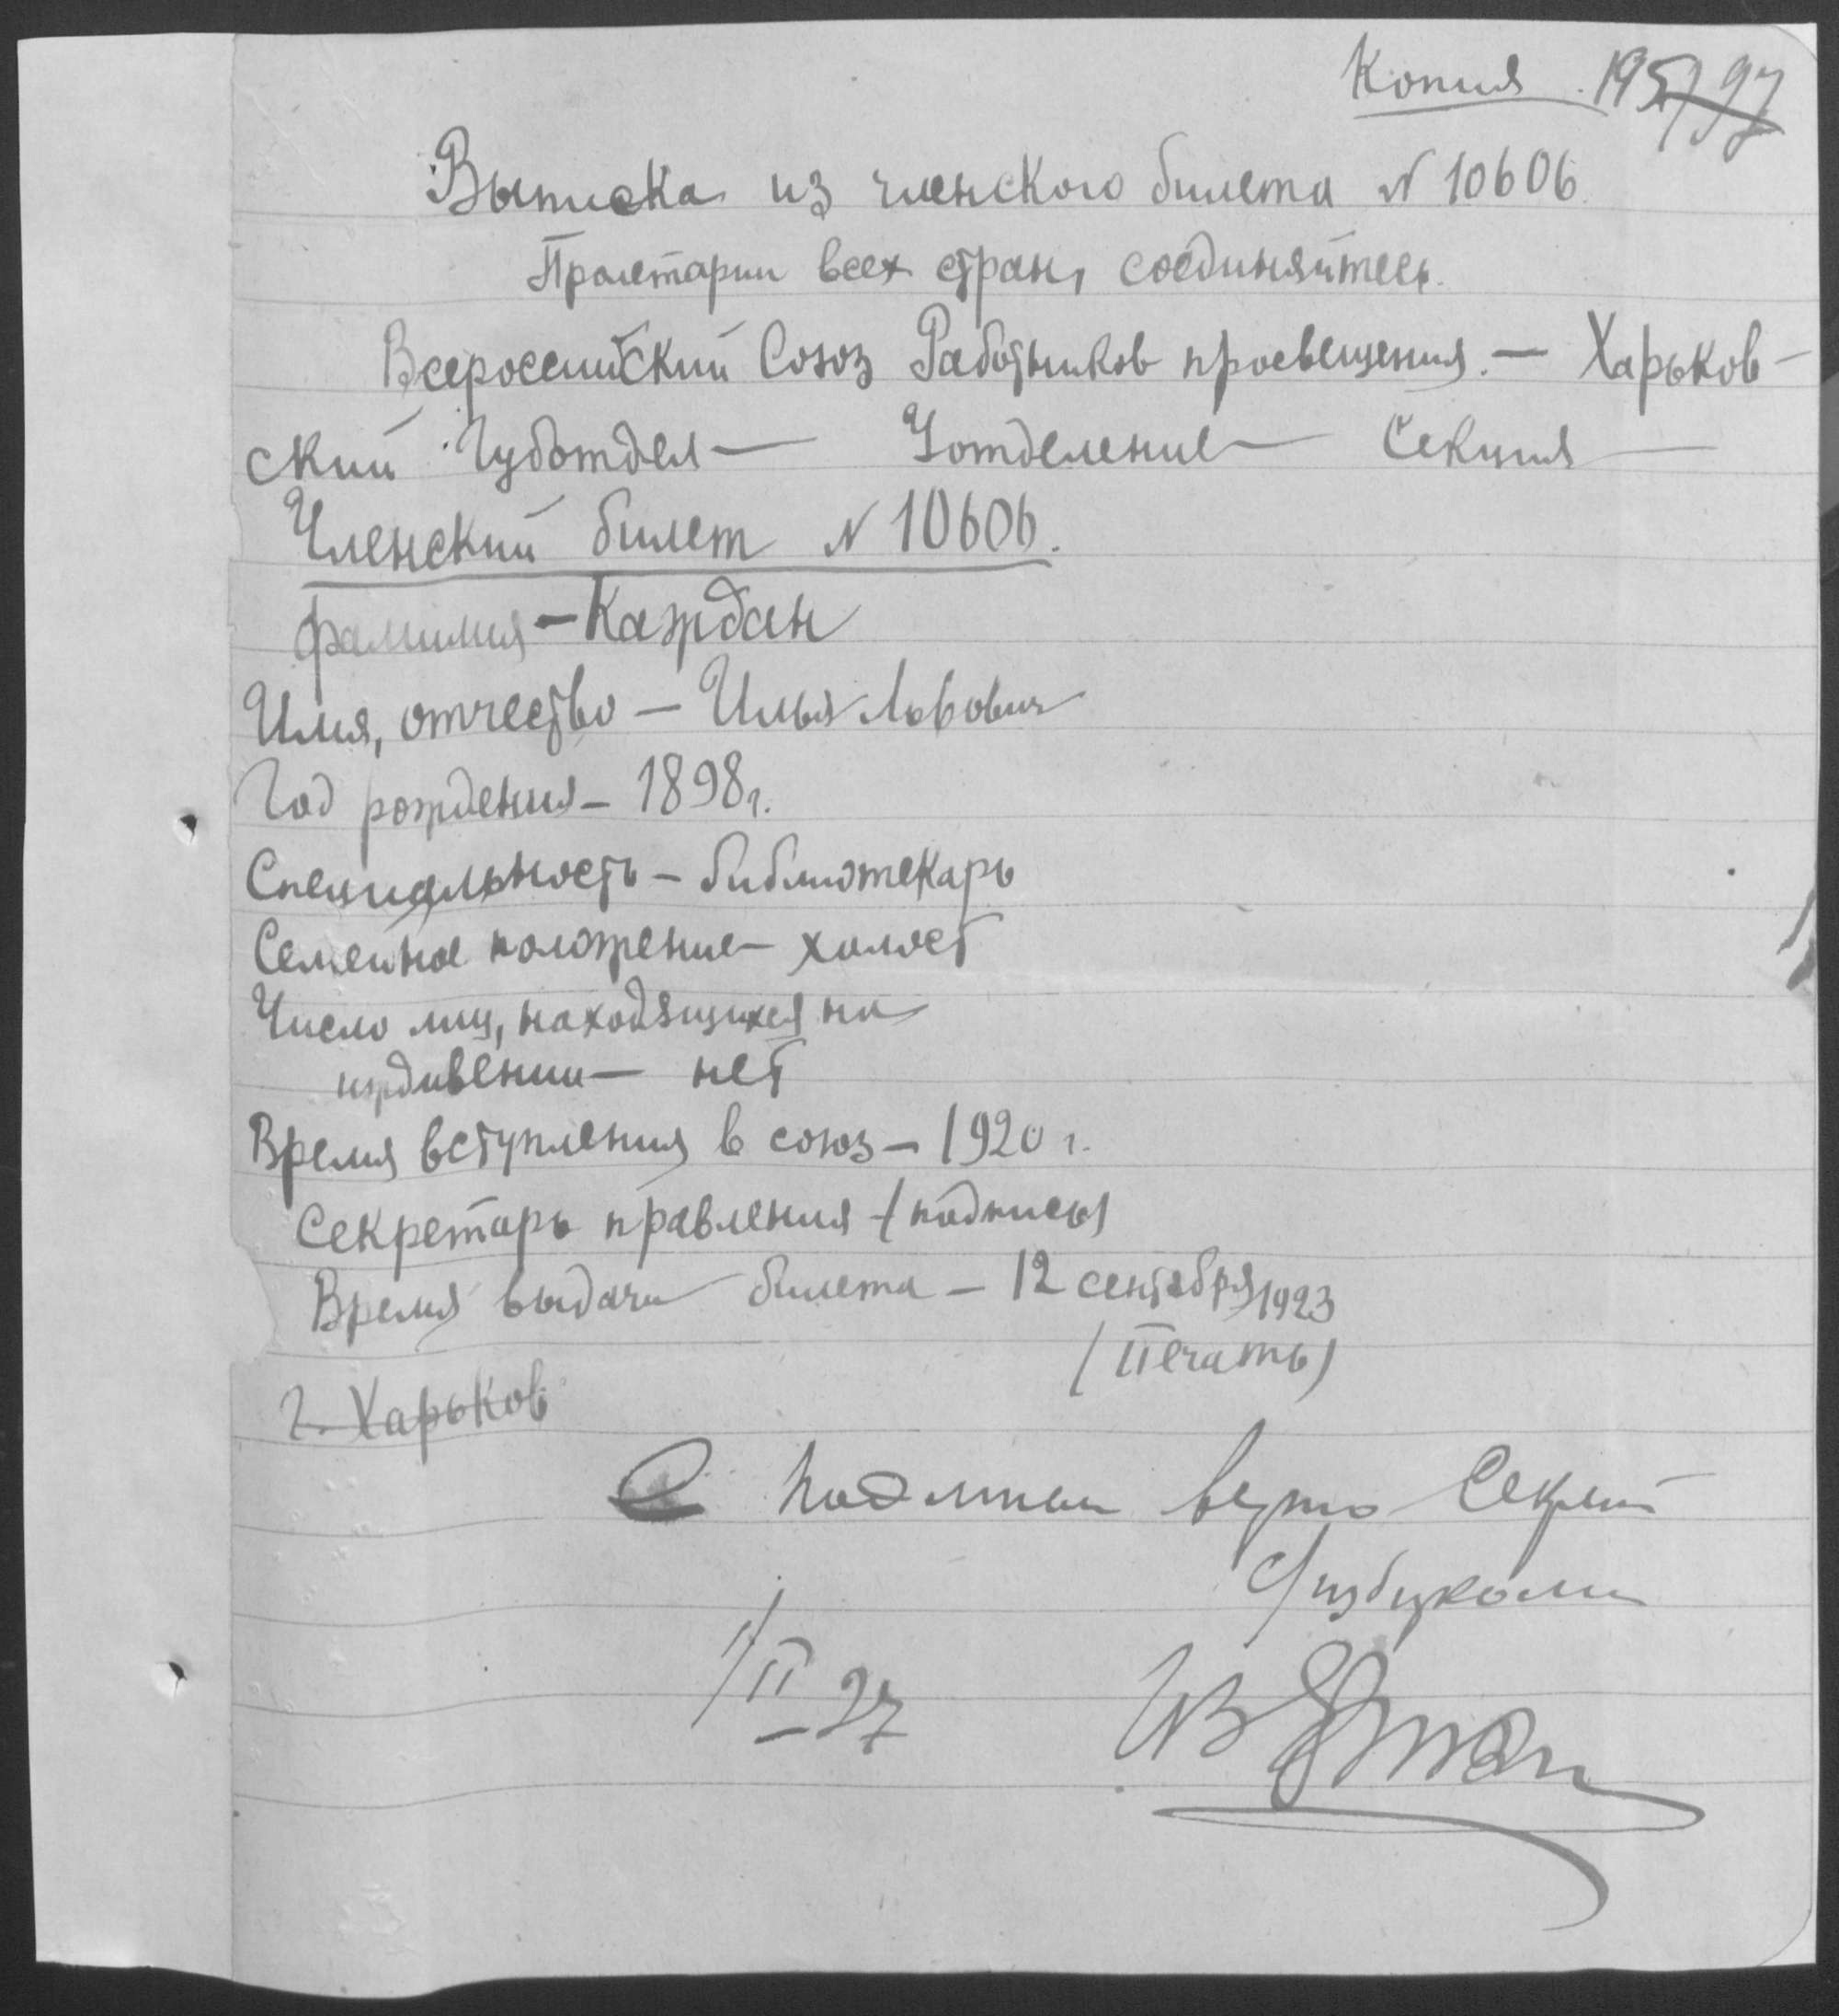 Копия 195
Выписка из членского билета N 10606.
Пролетарии всех стран, соединяйтесь.
Всероссийский Союз Работников просвещения. — Харьков-
ский Губотдел — Уотделение — Секция —
Членский билет N 10606.
фамилия — Каждан
Имя, отчество — Илья Львович
Год рождения — 1898 г.
Специальность — библиотекарь
Семейное положение — холост
Число лиц, находящихся на
иждивении — нет
Время вступления в союз — 1920 г.
Секретарь правления — (подпись)
Время выдачи билета — 12 сентября 1923
(Печать)
г. Харьков
С подлинным верно Секрет
1/II — 27